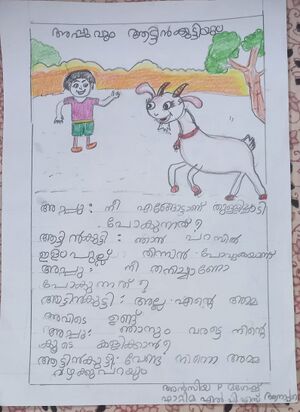 അപ്പുവും ആട്ടിൻകുട്ടിയും
അപ്പു : നീ എങ്ങോട്ടാണ് തുള്ളിച്ചാടി
പോകുന്നത് ?
ആട്ടിൻകുട്ടി : ഞാൻ പറമ്പിൽ
ഇളംപുല്ല് തിന്നാൻ പോവുകയാണ്
അപ്പു : നീ തനിച്ചാണോ
പോകുന്നത് ?
ആട്ടിൻകുട്ടി : അല്ല എന്റെ അമ്മ
അവിടെ ഉണ്ട്
അപ്പു : ഞാനും വരട്ടെ നിന്റെ
കൂടെ കളിക്കാൻ ?
ആട്ടിൻകുട്ടി : വേണ്ട നിന്നെ അമ്മ
വഴക്കുപറയും
P
ഫാത്തിമ എൽ പി എസ്